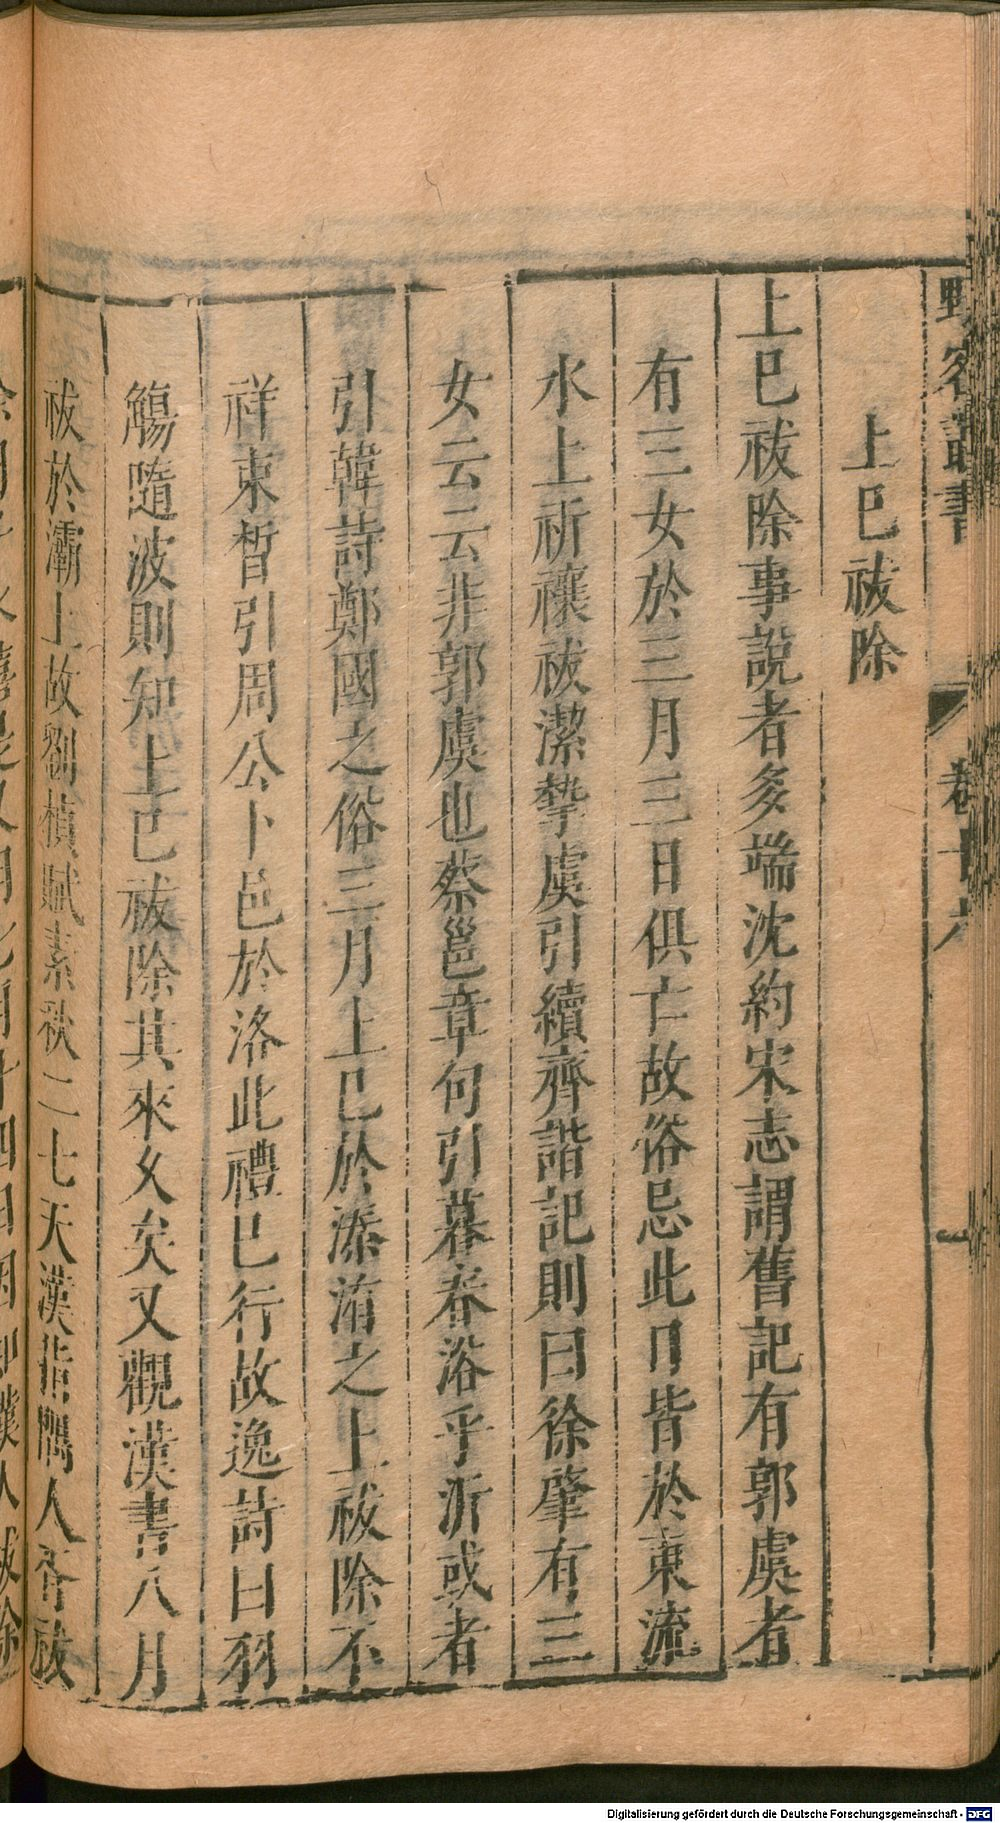 野客叢書 卷十六 一
上巳祓除
上巳祓除事說者多端沈約宋志謂舊記有郭虞者
有三女於三月三日俱亡故俗忌此日皆於東流
水上祈禳祓潔摯虞引續齊諧記則曰徐肇有三
女云云非郭虞也蔡邕章句引暮春浴乎沂或者
引韓詩鄭國之俗三月上巳於溱洧之上祓除不
祥束晳引周公卜邑於洛此禮已行故逸詩曰羽
觴隨波則知上巳祓除其來久矣又觀漢書八月
祓於灞上故劉楨賦素秋二七天漢指隅人胥祓
Digitalisierung gefördert durch die Deutsche Forschungsgemeinschaft - DFG